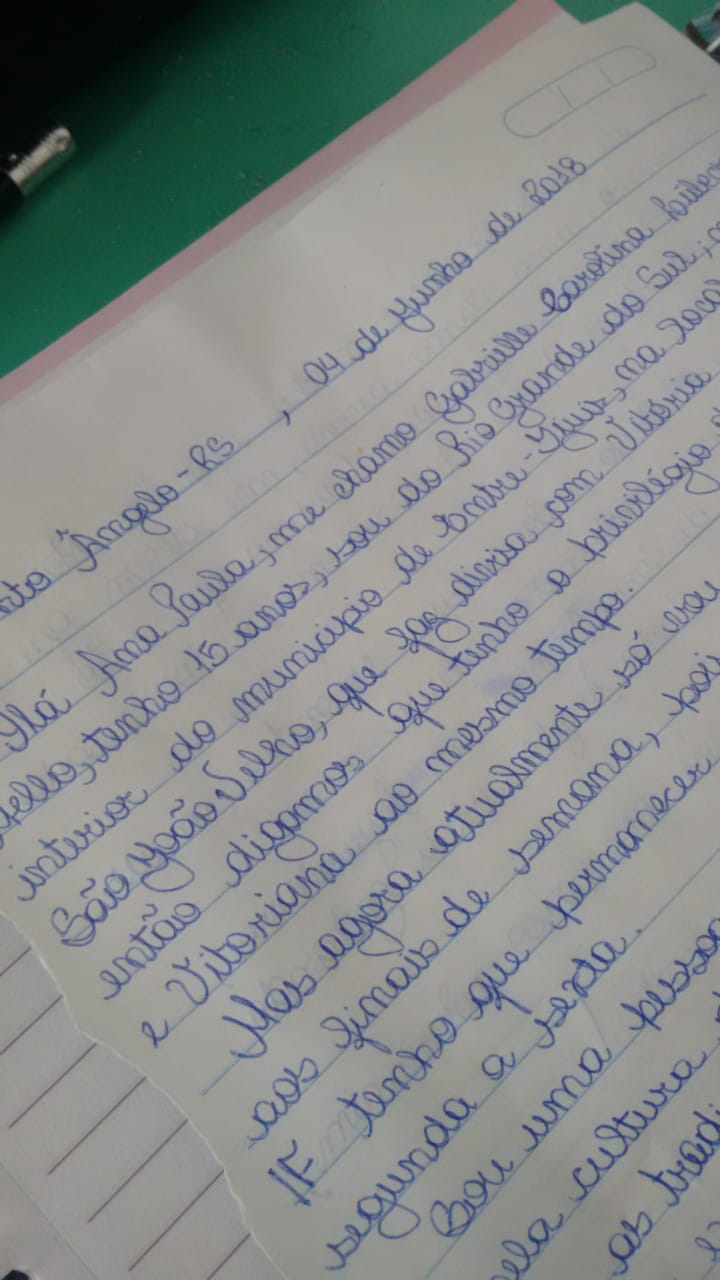 nto Ângelo-RS , 04 de Junho de 2018
Olá Ana Paula, me chamo Gabrielle Carolina
dello, tenho 15 anos, sou do Rio Grande do Sul,
interior do município de Entre-Ijuis, na
São João Velho, que faz divisa com Vitória
então digamos que tenho o privilégio
e Vitoriana ao mesmo tempo.
Mas agora atualmente só vou
aos finais de semana, poi
IF tenho que permanecer
segunda a sexta.
Sou uma pessoa
ela cultura
as tradi